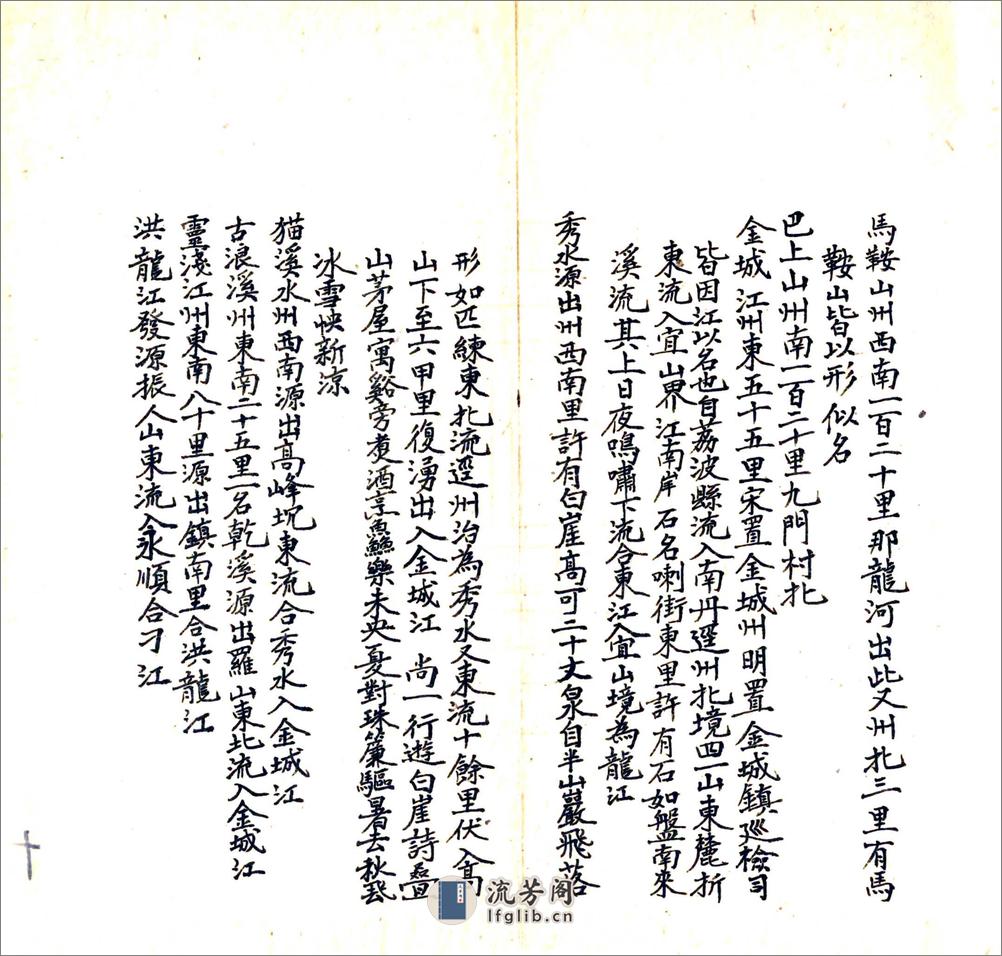 馬鞍山州西南一百二十里那龍河出此又州北三里有馬
鞍山皆以形似名
巴上山州南一百二十里九門村北
金城江州東五十五里宋置金城州明置金城鎮巡檢司
皆因江以名也自荔波縣流入南丹逕州北境四一山東麓折
東流入宜山界江南岸石名喇街東里許有石如盤南來
溪流其上日夜鳴嘯下流合東江入宜山境為龍江
秀水源出州西南里許有白崖高可二十丈泉自半山巖飛落
形如匹練東北流逕州治為秀水又東流十餘里伏入高
山下至六甲里復湧出入金城江 尚一行遊白崖詩疊
山茅屋寓谿旁煑酒烹魚樂未央夏對珠簾驅暑去秋
冰雪怏新凉
猫溪水州西南源出高峰坑東流合秀水入金城江
古浪溪州東南二十五里一名乾溪源出羅山東北流入金城江
靈淺江州東南八十里源出鎮南里合洪龍江
洪龍江發源振人山東流入永順合刁江
流芳阁
lfglib.cn